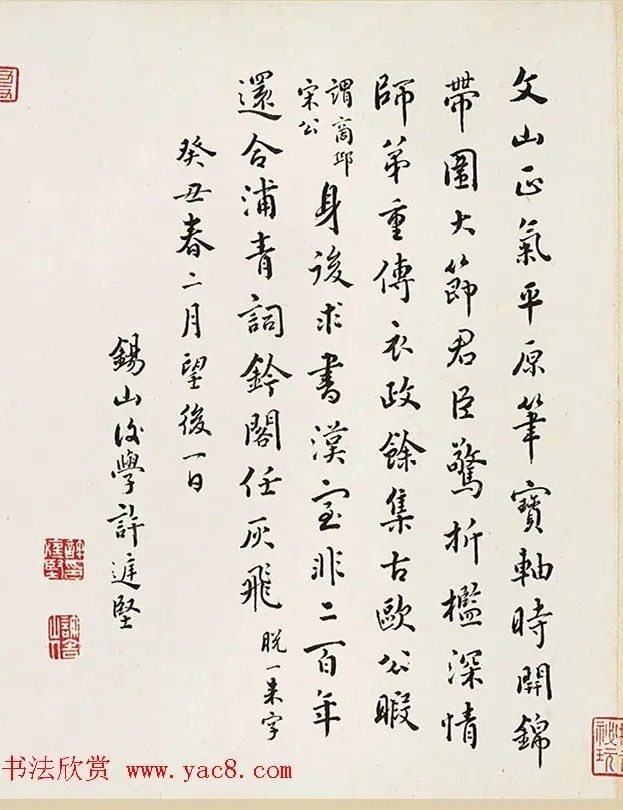 文山正氣平原筆寶軸時開錦
帶圍大節君臣驚折檻深情
師弟重傳衣政餘集古歐公暇
謂商邱
宋公
身後求書漢室非二百年
還合浦青詞鈐閣任灰飛
脫一來字
癸丑春二月望後一日
錫山後學許庭堅
书法欣赏 www.yac8.com